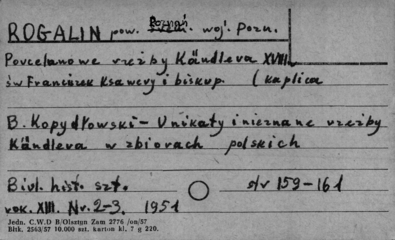 ROGALIN pow. Poznań. woj. Pozn.
Porcelanowe rzeźby Kändlera XVIII
św Franciszek Ksawery i biskup (kaplica
B. Kopydłowski - Unikaty i nieznane rzeźby
Kändlera w zbiorach polskich
Biul. hist. szt. str 159-161
rok. XIII. Nr. 2-3. 1951
Jedn. C.W.D B/Olsztyn Zam 2776 /on/57
Bltk. 2563/57 10.000 szt. karton kl. 7 g 220.